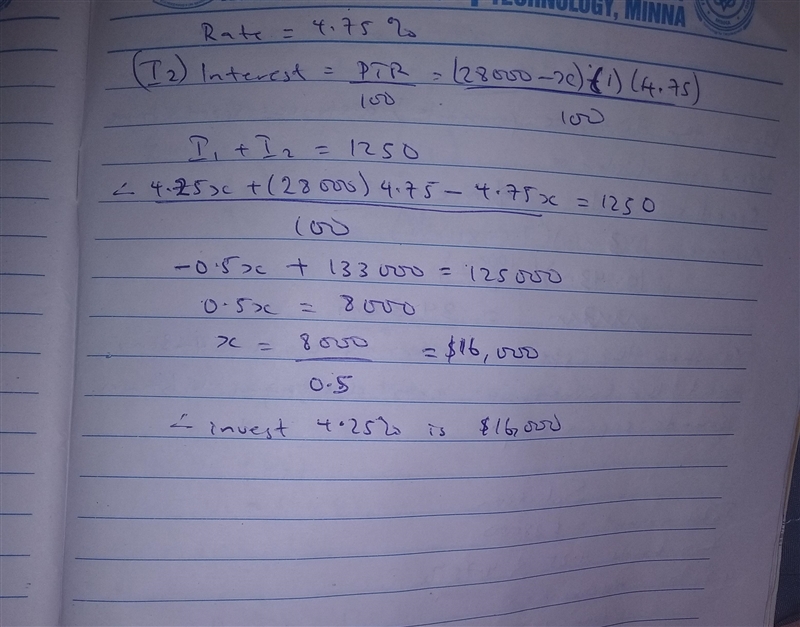 TECHNOLOGY, MINNA
Rate = 4.75%
(I2) Interest = PTR/100 = (28000 - x)(1)(4.75)/100
I1 + I2 = 1250
∠ 4.25x + (28000) 4.75 - 4.75x / 100 = 1250
-0.5x + 133000 = 125000
0.5x = 8000
x = 8000/0.5 = $16,000
∠ invest 4.25% is $16,000